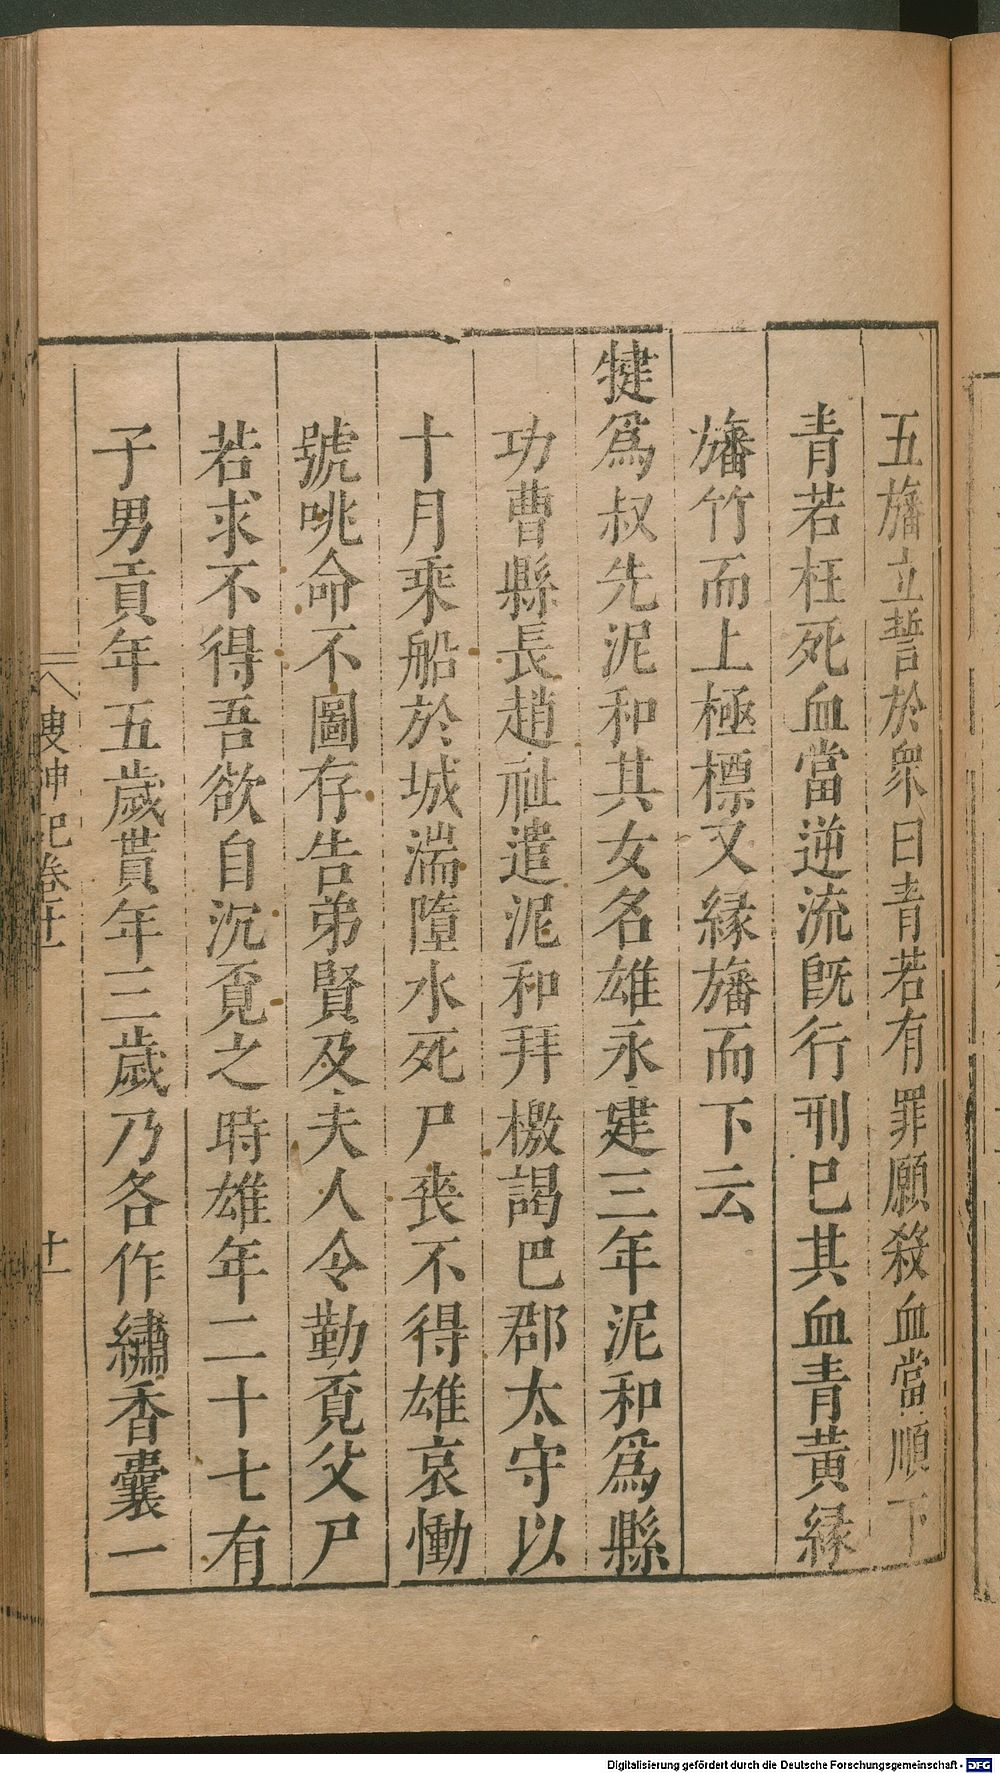 五旛立誓於衆曰青若有罪願殺血當順下
青若枉死血當逆流旣行刑巳其血青黃緣
旛竹而上極標又緣旛而下云
犍爲叔先泥和其女名雄永建三年泥和爲縣
功曹縣長趙祉遣泥和拜檄謁巴郡太守以
十月乘船於城湍墮水死尸喪不得雄哀慟
號咷命不圖存告弟賢及夫人令勤覔父尸
若求不得吾欲自沉覔之時雄年二十七有
子男貢年五歲貰年三歲乃各作繡香囊一
搜神記卷十一
十一
Digitalisierung gefördert durch die Deutsche Forschungsgemeinschaft - DFG